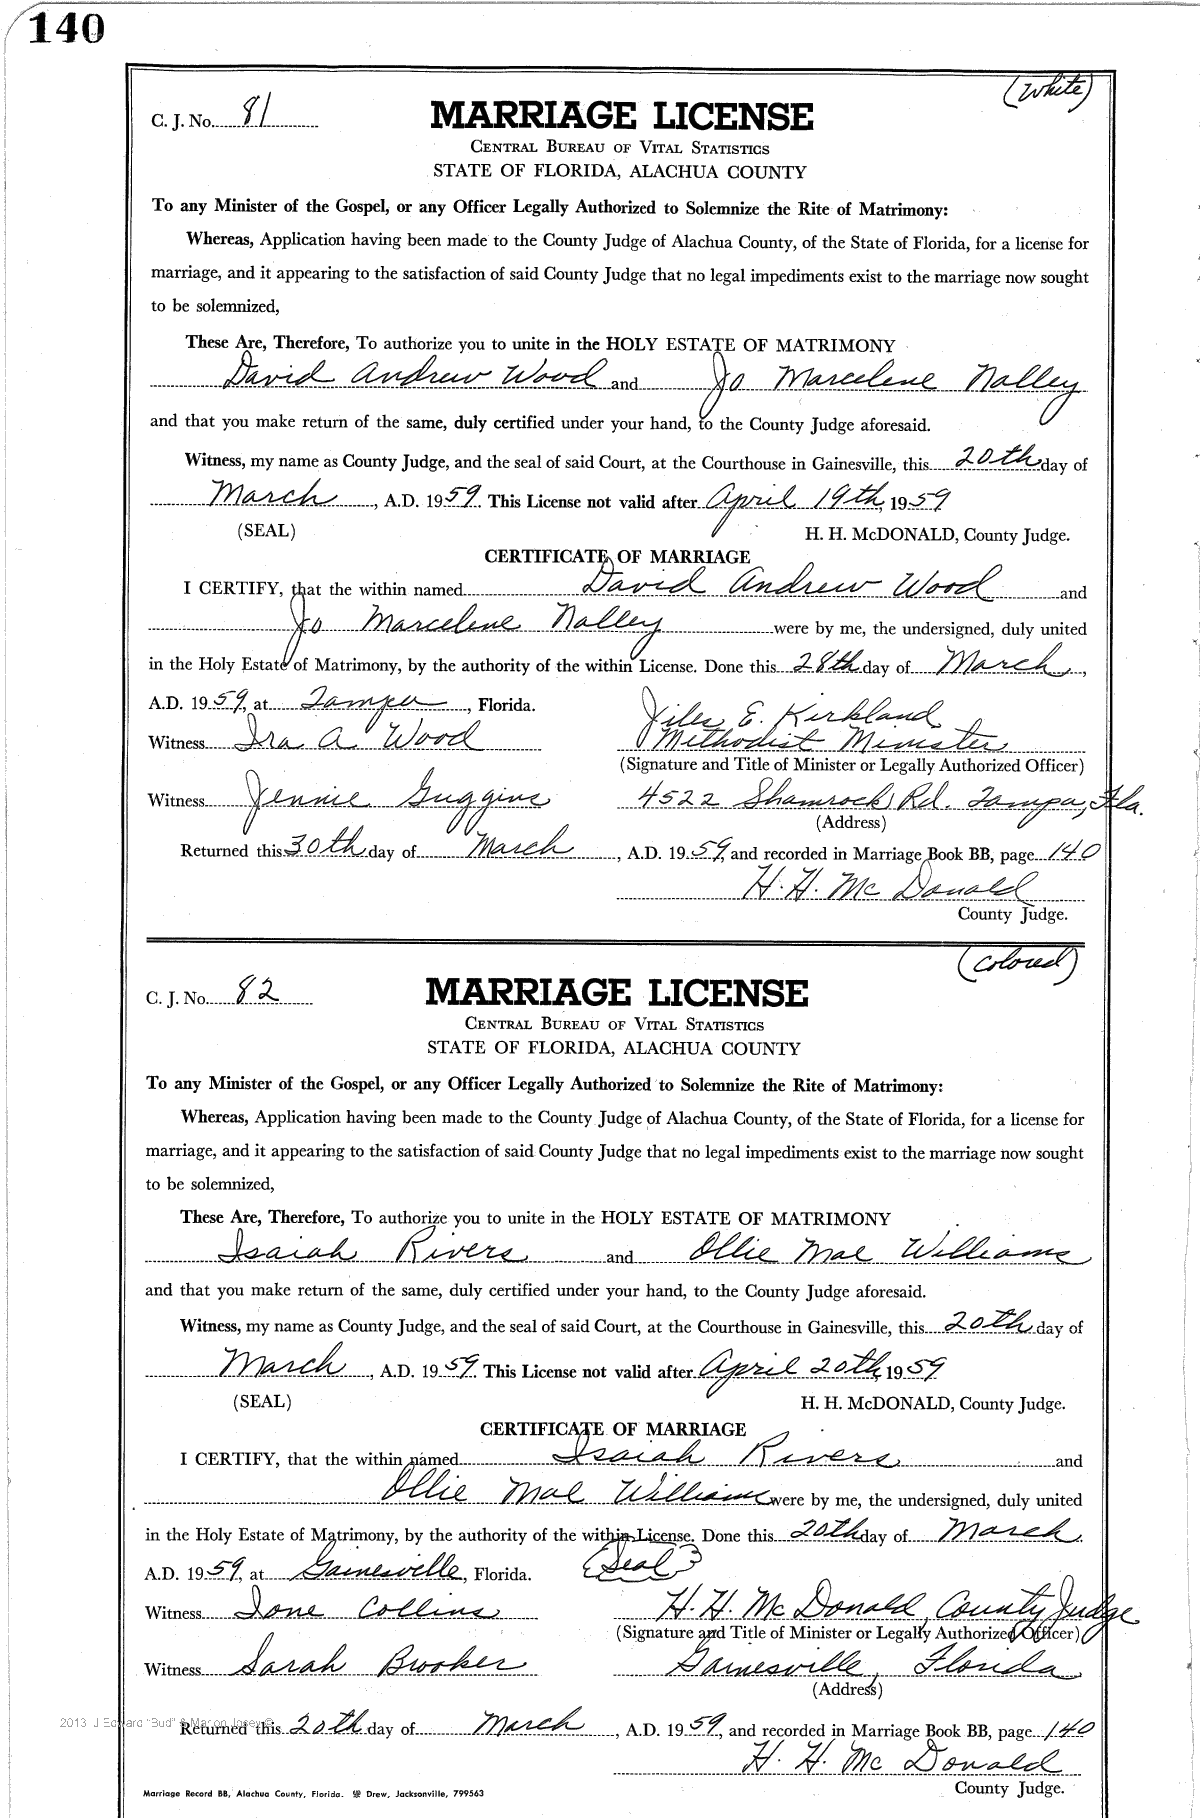 140
(White)
C. J. No. 81
MARRIAGE LICENSE
CENTRAL BUREAU OF VITAL STATISTICS
STATE OF FLORIDA, ALACHUA COUNTY
To any Minister of the Gospel, or any Officer Legally Authorized to Solemnize the Rite of Matrimony:
Whereas, Application having been made to the County Judge of Alachua County, of the State of Florida, for a license for
marriage, and it appearing to the satisfaction of said County Judge that no legal impediments exist to the marriage now sought
to be solemnized,
These Are, Therefore, To authorize you to unite in the HOLY ESTATE OF MATRIMONY
David Andrew Wood and Jo Marcelene Nalley
and that you make return of the same, duly certified under your hand, to the County Judge aforesaid.
Witness, my name as County Judge, and the seal of said Court, at the Courthouse in Gainesville, this 20th day of
March, A.D. 1959. This License not valid after April 19th, 1959
(SEAL) H. H. McDONALD, County Judge.
CERTIFICATE OF MARRIAGE
I CERTIFY, that the within named David Andrew Wood and
Jo Marcelene Nalley were by me, the undersigned, duly united
in the Holy Estate of Matrimony, by the authority of the within License. Done this 28th day of March,
A.D. 1959, at Tampa, Florida. Jiles E. Kirkland
Witness Ira A Wood Methodist Minister
(Signature and Title of Minister or Legally Authorized Officer)
Witness Jennie Guggins 4522 Shamrock Rd. Tampa, Fla.
(Address)
Returned this 30th day of March, A.D. 1959, and recorded in Marriage Book BB, page 140
H. H. McDonald
County Judge.
(Colored)
C. J. No. 82
MARRIAGE LICENSE
CENTRAL BUREAU OF VITAL STATISTICS
STATE OF FLORIDA, ALACHUA COUNTY
To any Minister of the Gospel, or any Officer Legally Authorized to Solemnize the Rite of Matrimony:
Whereas, Application having been made to the County Judge of Alachua County, of the State of Florida, for a license for
marriage, and it appearing to the satisfaction of said County Judge that no legal impediments exist to the marriage now sought
to be solemnized,
These Are, Therefore, To authorize you to unite in the HOLY ESTATE OF MATRIMONY
Isaiah Rivers and Ollie Mae Williams
and that you make return of the same, duly certified under your hand, to the County Judge aforesaid.
Witness, my name as County Judge, and the seal of said Court, at the Courthouse in Gainesville, this 20th day of
March, A.D. 1959. This License not valid after April 20th, 1959
(SEAL) H. H. McDONALD, County Judge.
CERTIFICATE OF MARRIAGE
I CERTIFY, that the within named Isaiah Rivers and
Ollie Mae Williams were by me, the undersigned, duly united
in the Holy Estate of Matrimony, by the authority of the within License. Done this 20th day of March.
A.D. 1959, at Gainesville, Florida. (Seal)
Witness Ione Collins H. H. McDonald, County Judge
(Signature and Title of Minister or Legally Authorized Officer)
Witness Sarah Brooker Gainesville, Florida
(Address)
2013 J Edward "Bud" & Marion Josey ©
Returned this 20th day of March, A.D. 1959, and recorded in Marriage Book BB, page 140
H. H. McDonald
County Judge.
Marriage Record BB, Alachua County, Florida. Drew, Jacksonville, 799563